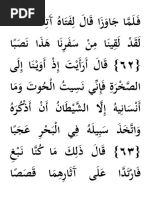 فَلَمَّا جَاوَزَا قَالَ لِفَتَاهُ
لَقَدْ لَقِينَا مِنْ سَفَرِنَا هَذَا نَصَبًا
{٦٢} قَالَ أَرَأَيْتَ إِذْ أَوَيْنَا إِلَى
الصَّخْرَةِ فَإِنِّي نَسِيتُ الْحُوتَ وَمَا
أَنْسَانِيهُ إِلَّا الشَّيْطَانُ أَنْ أَذْكُرَهُ
وَاتَّخَذَ سَبِيلَهُ فِي الْبَحْرِ عَجَبًا
{٦٣} قَالَ ذَلِكَ مَا كُنَّا نَبْغِ
فَارْتَدَّا عَلَى آثَارِهِمَا قَصَصًا